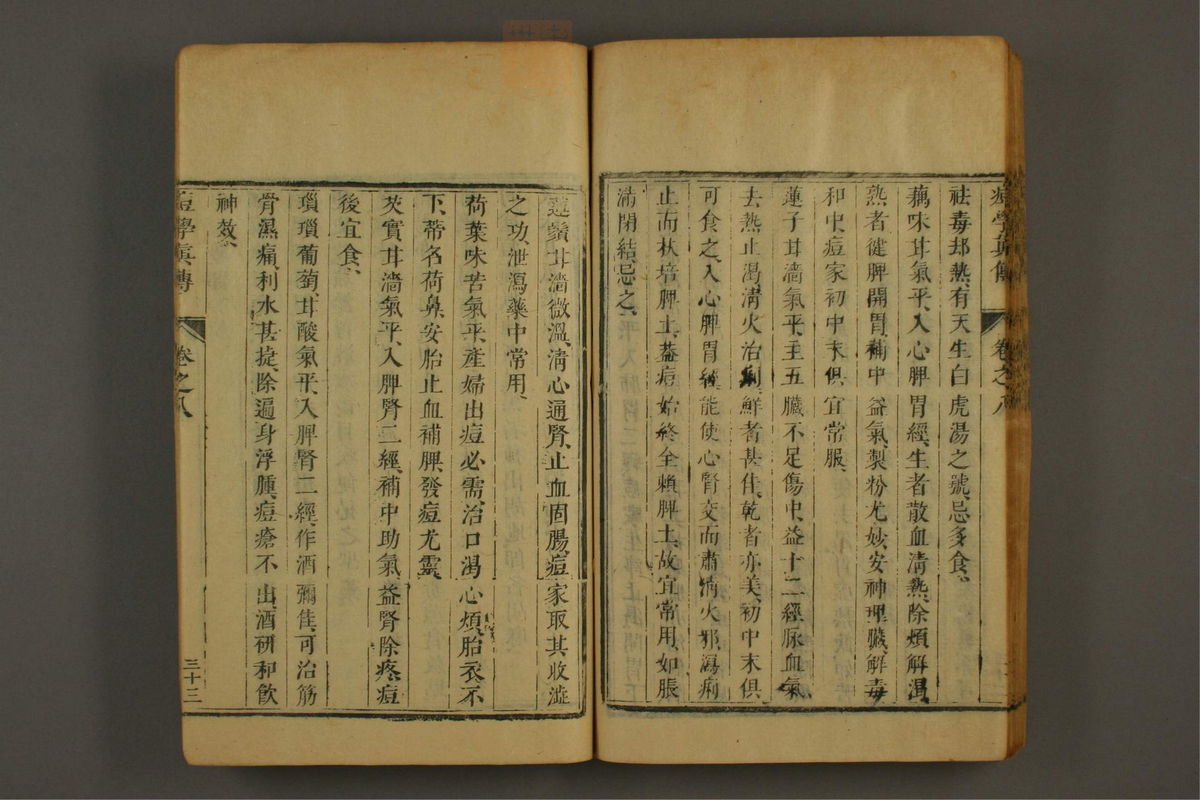 痘學真傳 卷之八
祛毒却熱、有天生白虎湯之號、忌多食、
藕味甘氣平、入心脾胃經、生者散血淸熱、除煩解渴
熟者健脾開胃、補中益氣、製粉尤妙、安神理臟、解毒
和中、痘家初中末俱宜常服、
蓮子甘濇氣平、主五臟不足傷中、益十二經脉血氣
去熱止渴、淸火治痢、鮮者甚佳、乾者亦美、初中末俱
可食之、入心脾胃經、能使心腎交而肅淸火邪、瀉痢
止而扶培脾土、葢痘始終全賴脾土、故宜常用、如脹
滿閉結、忌之、
蓮鬚甘濇微溫、淸心通腎、止血固腸、痘家取其收澁
之功、泄瀉藥中常用、
荷葉味苦氣平、產婦出痘必需、治口渴心煩、胎衣不
下、蒂名荷鼻、安胎止血、補脾、發痘尤靈、
芡實甘濇氣平、入脾腎二經、補中助氣、益腎除疼、痘
後宜食、
瑣瑣葡萄甘酸氣平、入脾腎二經、作酒彌佳、可治筋
骨濕痛、利水甚捷、除遍身浮腫、痘瘡不出、酒研和飮
神效、
痘學真傳 卷之八 三十三